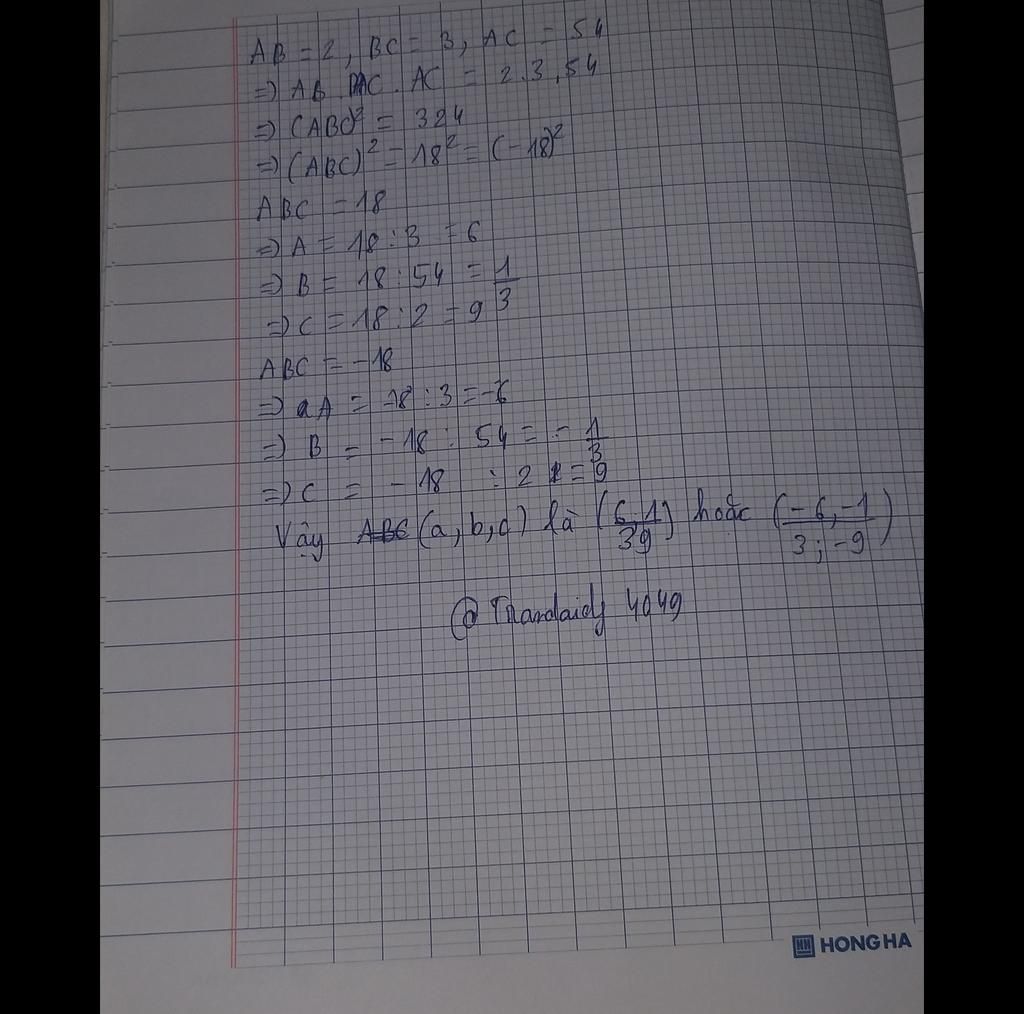 AB = 2, BC = 3, AC = 54
=> AB . AC = 2.3.54
=> (ABC)² = 324
=> (ABC)² = 18² = (-18)²
ABC = 18
=> A = 18 : 3 = 6
=> B = 18 : 54 = 1/3
=> C = 18 : 2 = 9
ABC = -18
=> A = -18 : 3 = -6
=> B = -18 : 54 = - 1/3
=> C = -18 : 2 = 9
Vậy (a, b, c) là (6,1/39) hoặc (-6,-1/3;-9)
@ 4049
HONG HA